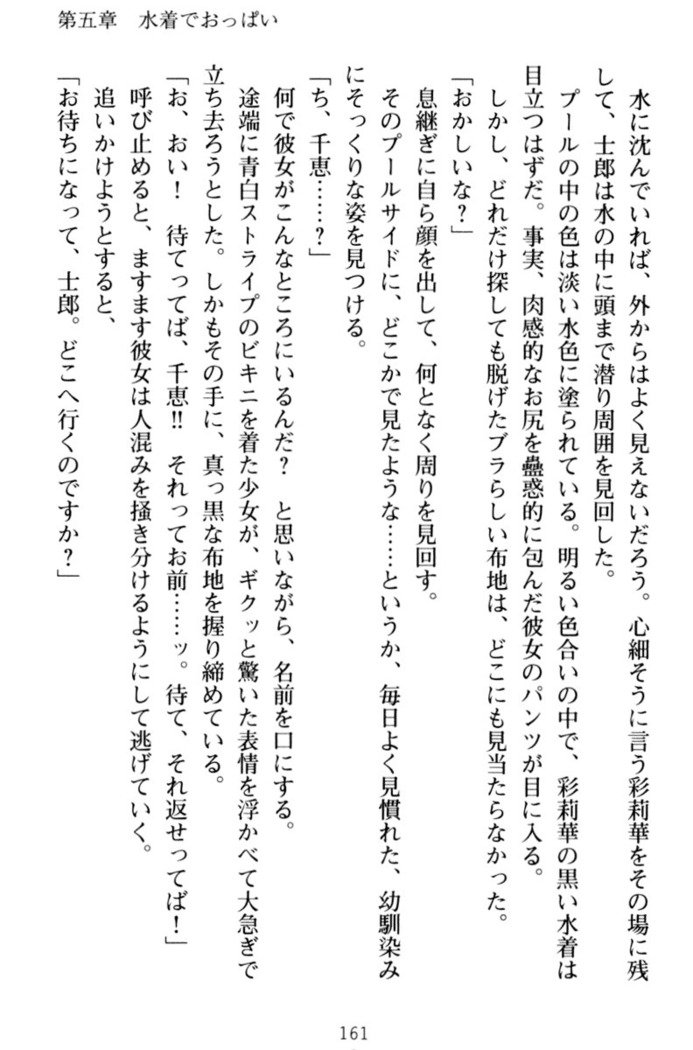 第五章　水着でおっぱい
水に沈んでいれば、外からはよく見えないだろう。心細そうに言う彩莉華をその場に残
して、士郎は水の中に頭まで潜り周囲を見回した。
プールの中の色は淡い水色に塗られている。明るい色合いの中で、彩莉華の黒い水着は
目立つはずだ。事実、肉感的なお尻を蠱惑的に包んだ彼女のパンツが目に入る。
しかし、どれだけ探しても脱げたブラらしい布地は、どこにも見当たらなかった。
「おかしいな?」
息継ぎに自ら顔を出して、何となく周りを見回す。
そのプールサイドに、どこかで見たような……というか、毎日よく見慣れた、幼馴染み
にそっくりな姿を見つける。
「ち、千恵……?」
何で彼女がこんなところにいるんだ?　と思いながら、名前を口にする。
途端に青白ストライプのビキニを着た少女が、ギクッと驚いた表情を浮かべて大急ぎで
立ち去ろうとした。しかもその手に、真っ黒な布地を握り締めている。
「お、おい!　待てってば、千恵!!　それってお前……ッ。待て、それ返せってば!」
呼び止めると、ますます彼女は人混みを掻き分けるようにして逃げていく。
追いかけようとすると、
「お待ちになって、士郎。どこへ行くのですか?」
161